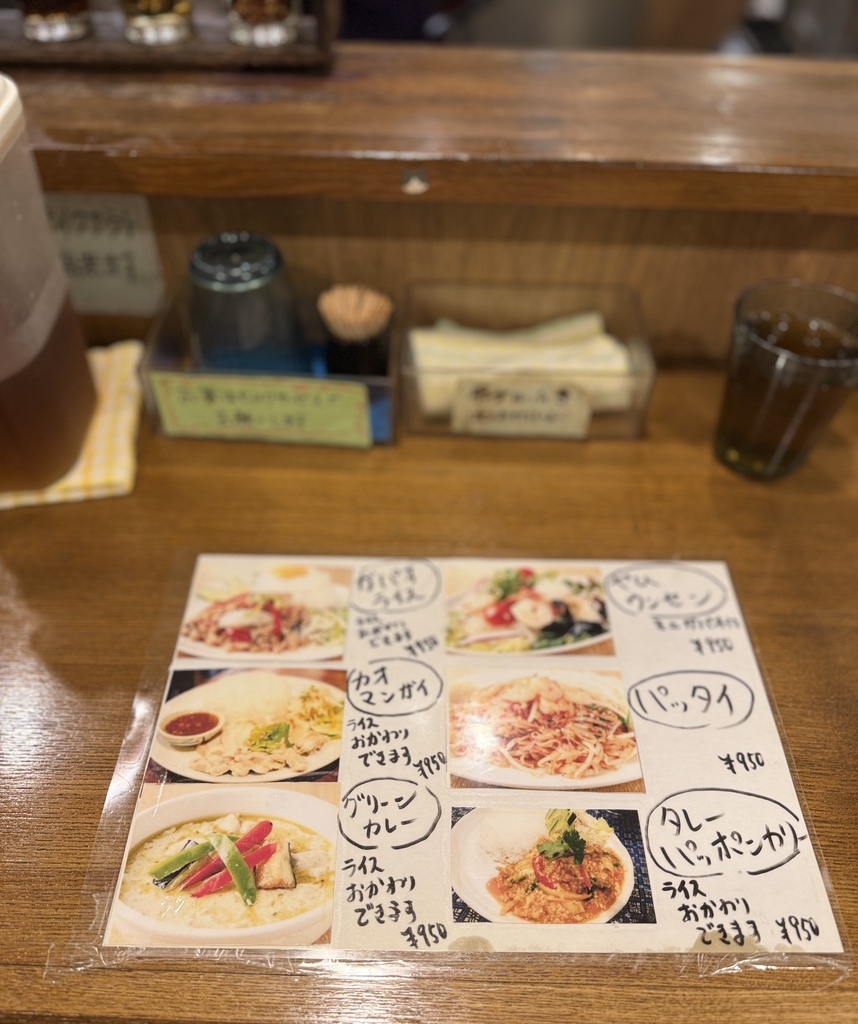 ガパオ
ライス
ライス
おかわり
できます
¥950
ヤム
ウンセン
¥950
カオ
マンガイ
ライス
おかわり
できます
¥950
パッタイ
¥950
グリーン
カレー
ライス
おかわり
できます
¥950
タレー
パッポンカリー
ライス
おかわり
できます
¥950